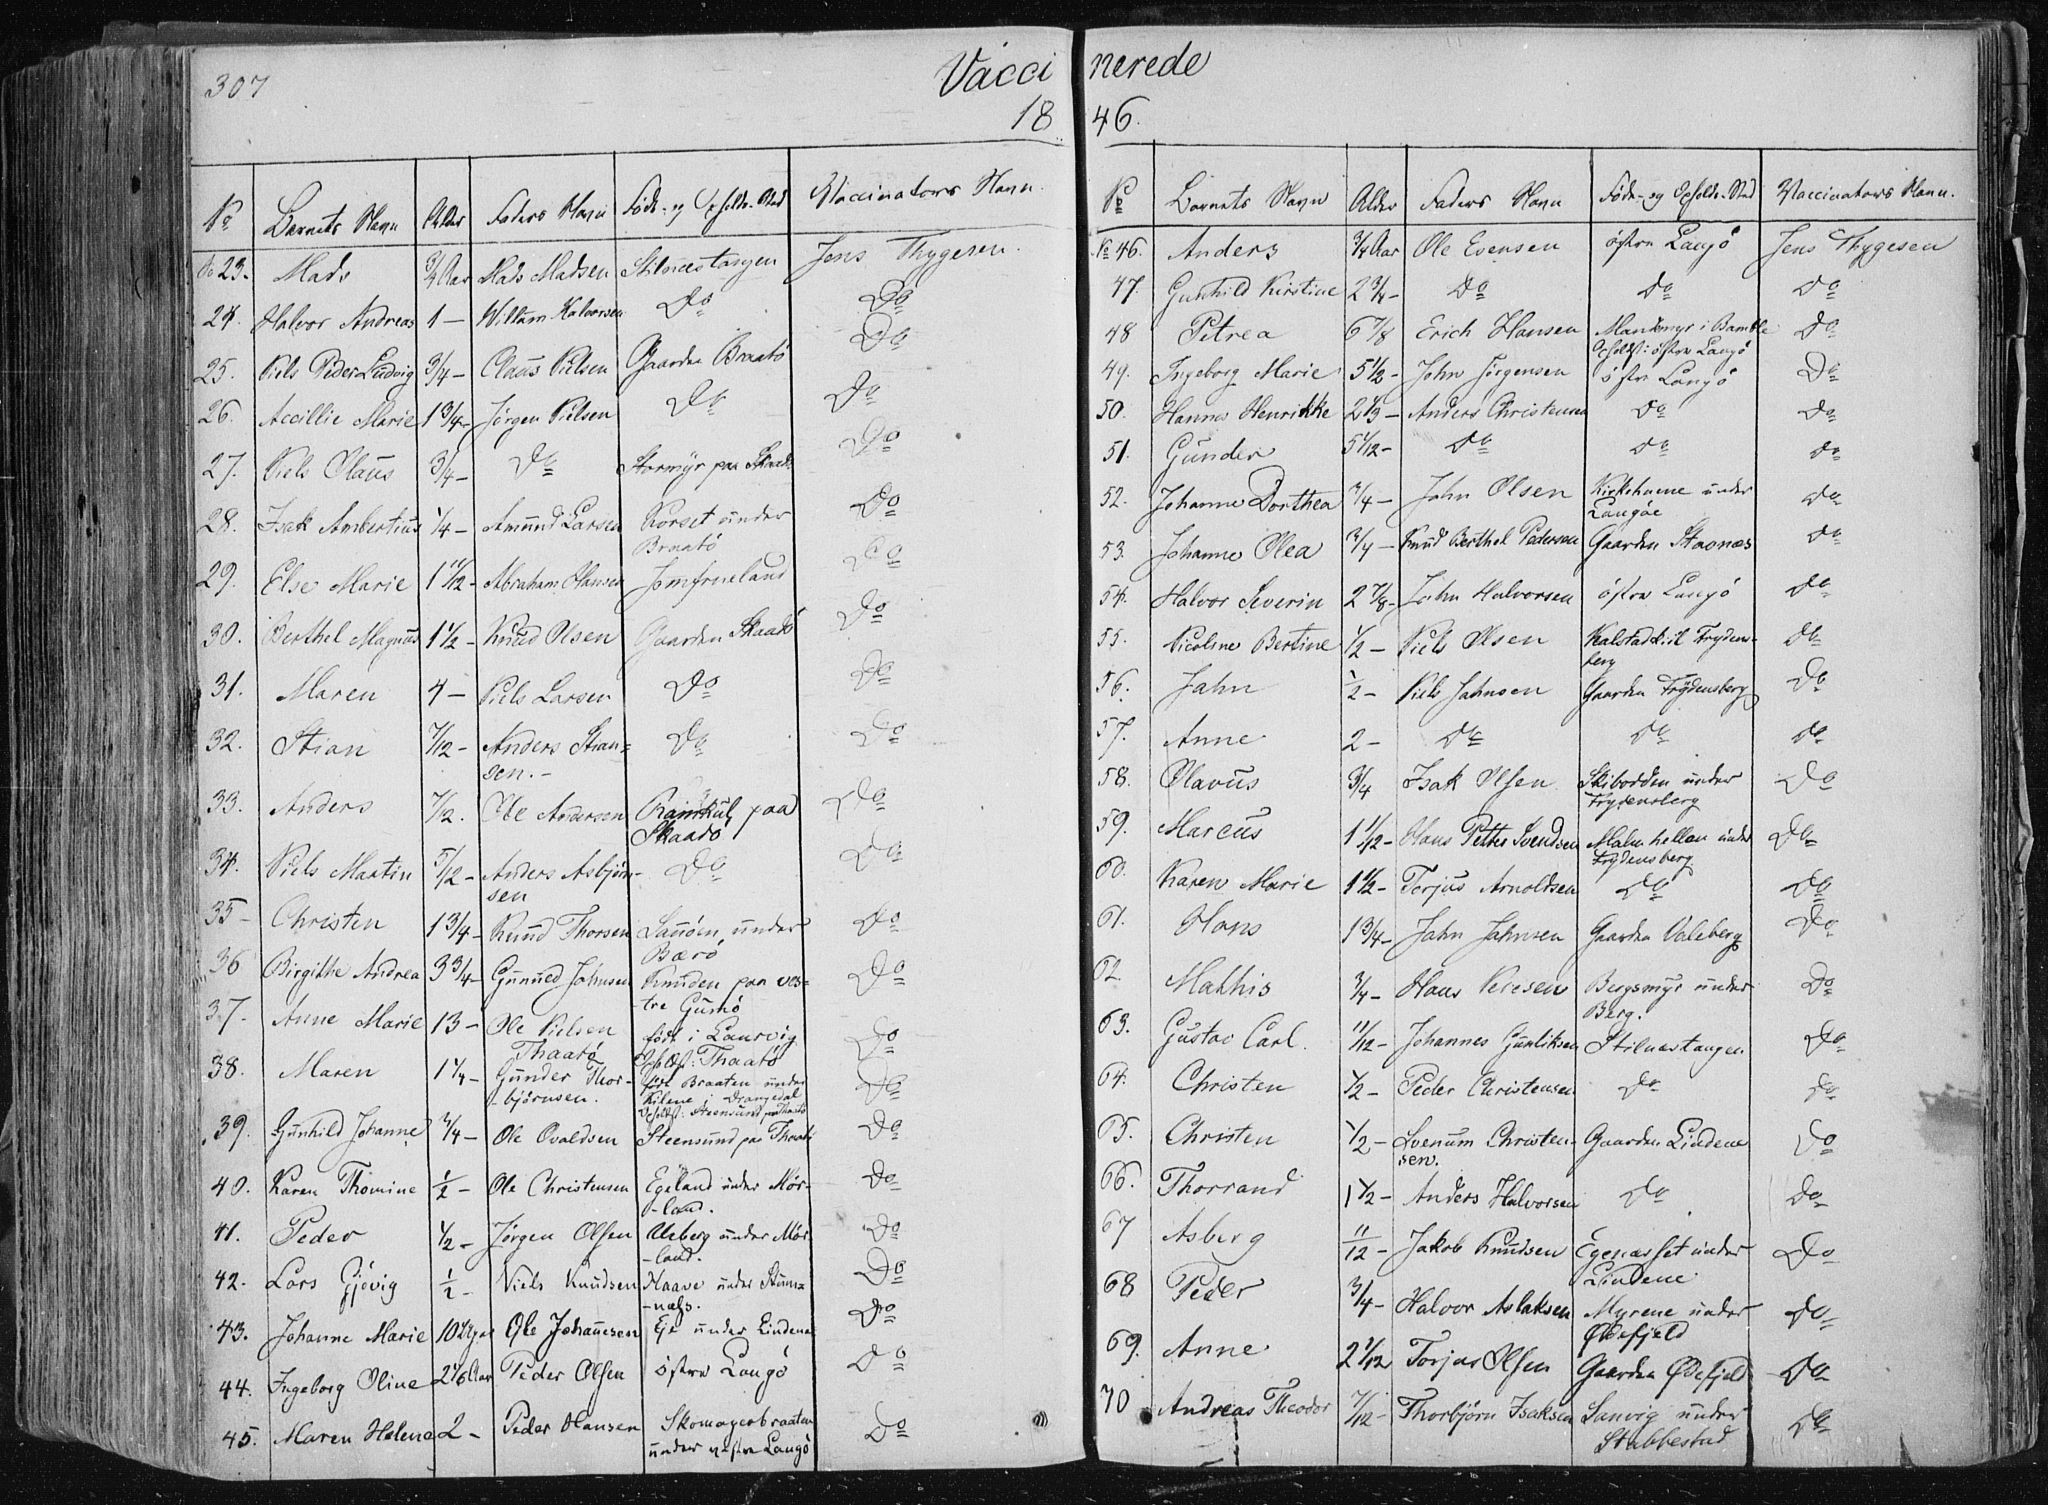 307
Vacci nerede
18 46.
No Barnets Navn Alder Faders Navn Føde- og Opholds-Sted Vaccinators Navn.
No 23. Mads 3/4 Aar Mads Madsen Stilnestangen Jens Thygesen.
24. Halvor Andreas 1 — Willam Halvorsen Do Do
25. Niels Peder Ludvig 3/4 — Claus Nielsen Gaarden Braatö Do
26. Accillie Marie 1 3/4 — Jørgen Nielsen Do Do
27. Niels Olaus 3/4 — Do Stormÿr paa Skaadö Do
28. Isak Ambertius 1/4 — Amund Larsen Korset under Do
Braatö
29. Else Marie 1 11/12 — Abraham Hansen Jomfrueland Do
30. Berthel Magnus 1 1/2 — Knud Olsen Gaarden Skaadö Do
31. Maren 4 — Niels Larsen Do Do
32. Stian 7/12 — Anders Stian= Do Do
sen. -
33. Anders 7/12. Ole Andersen paa Do
Skaadö
34. Niels Martin 5/12 — Anders Asbjørn- Do Do
sen
35 - Christen 1 3/4 — Knud Thorsen under Do
Bærö
36 Birgithe Andrea 3 3/4 — Gunned Johnsen Knuden paa ves- Do
tre Gumö
37. Anne Marie 13 — Ole Nielsen født i Laurvig Do
Thaatö Opholdst: Thaatö
38. Maren 1 1/4 — Gunder Thor- født Braaten under Do
-bjørnsen. Kilene i Drangedal
Opholdst: Steensund paa Thaatö
39. Gunhild Johanne 1/4 — Ole Ovaldsen Steensund paa Thaatö Do
40. Karen Thomine 1/2 — Ole Christensen Egeland under Mør- Do
-land.
41. Peder 1/2 — Jørgen Olsen under Mør- Do
-land.
42. Lars Gjøvig 1/2 - Niels Knudsen Haave under Do
43. Johanne Marie 10 Ole Johanesen Eje under Lindene Do
44. Ingeborg Oline 2 1/6 Aar Peder Olsen östre Langö Do
45. Maren Helene 2 — Peder Hansen Skomagerbraaten Do
under vestre Langö
No Barnets Navn Alder Faders Navn Føde- og Opholds-Sted Vaccinators Navn.
No 46. Anders 3/4 Aar Ole Evensen östre Langö Jens Thygesen
47. Gunhild Kirstine 2 3/4 — Do Do Do
48 Petrea 6 7/8 Erich Hansen i Bamble Do
Opholdst: östre Langö
49. Ingeborg Marie 5 1/2 — John Jörgensen östre Langö Do
50. Hannes Henrikke 2 1/3 — Anders Christensen Do Do
51. Gunder 5 1/12 — Do Do Do
52. Johanne Dorthea 3/4 — John Olsen under Do
Langöe
53. Johanne Olea 3/4 — Knud Berthel Pedersen Gaarden Staanæs Do
54. Halvor Severin 2 7/8 — John Halvorsen östre Langö Do
55. Nicoline Bertine 1/2 — Niels Olsen Kalstadkil Frydens- Do
berg
56. Jahn 1/2 — Niels Jahnsen Gaarden Frÿdensberg Do
57. Anne 2 — Do Do Do
58. Olavus 3/4 Isak Olsen Skibodden under Do
Frydensberg
59. Marcus 1 1/2 — Hans Petter Svendsen Malmhellen under Do
Frydensberg
60. Karen Marie 1 1/2 — Torjus Arnoldsen Do Do
61. Hans 1 3/4 — Jahn Jahnsen Gaarden Valeberg Do
62 Mathis 3/4 — Hans Bergsmyr under Do
Berg.
63. Gustav Carl. 11/12 — Johannes Gunliksen Stilnestangen Do
64. Christen 1/2 — Peder Christensen Do Do
65. Christen 1/2 — Svenum Christen- Gaarden Lindene Do
sen.
66. Thorrand 1 1/2 — Anders Halvorsen Do Do
67 Asberg 11/12 — Jakob Knudsen under Do
Lindene
68 Peder 3/4 — Halvor Aslaksen Myrene under Do
Ødefjeld
69. Anne 2 1/12 Torjus Olsen Gaarden Ødefjeld Do
70 Andreas Theodor 7/12 — Thorbjörn Isaksen Sanvig under Do
Stabbestad